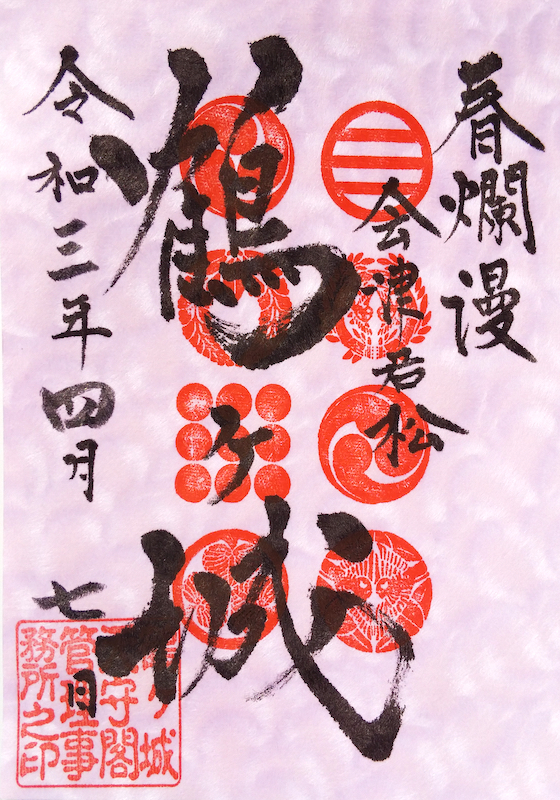 春爛漫
会津若松
鶴ヶ城
令和三年四月七日
鶴ヶ城
天守閣
管理事
務所之印